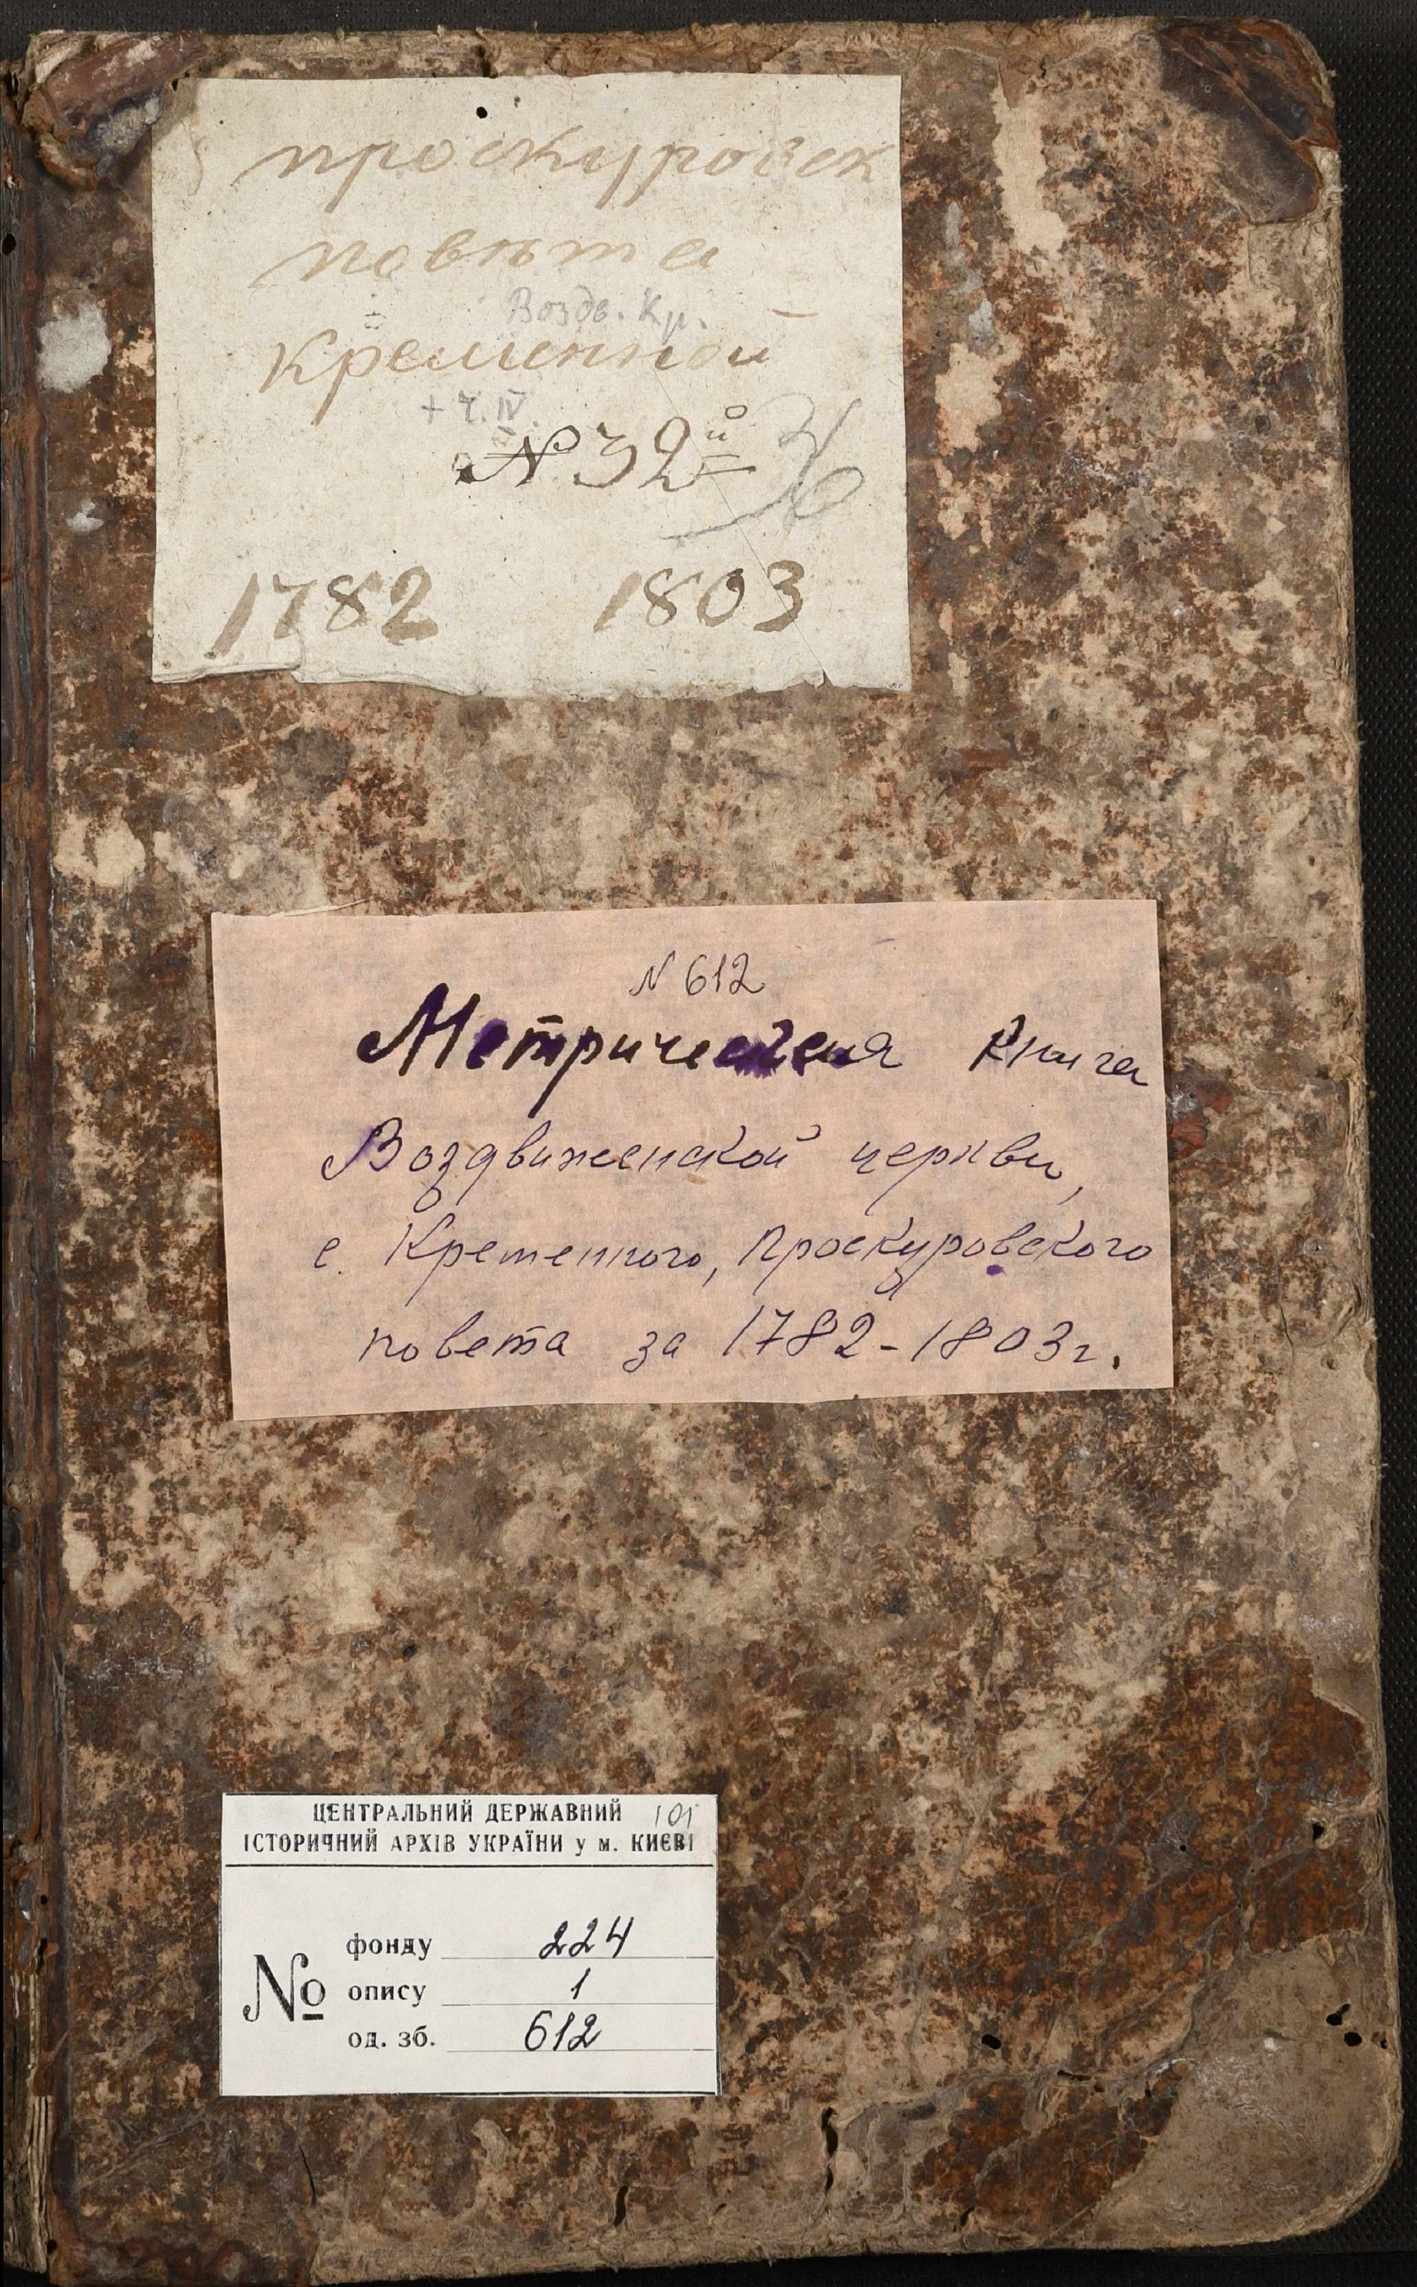 проскуровск
повѣта
Воздв. Кр.
Кременной
+ ч. IV
№ 32й
1782 1803
N 612
Метрическая Книга
Воздвиженской церкви,
с. Кременного, Проскуровского
повета за 1782-1803г.
ЦЕНТРАЛЬНИЙ ДЕРЖАВНИЙ 101
ІСТОРИЧНИЙ АРХІВ УКРАЇНИ у м. КИЄВІ
№
фонду 224
опису 1
од. зб. 612